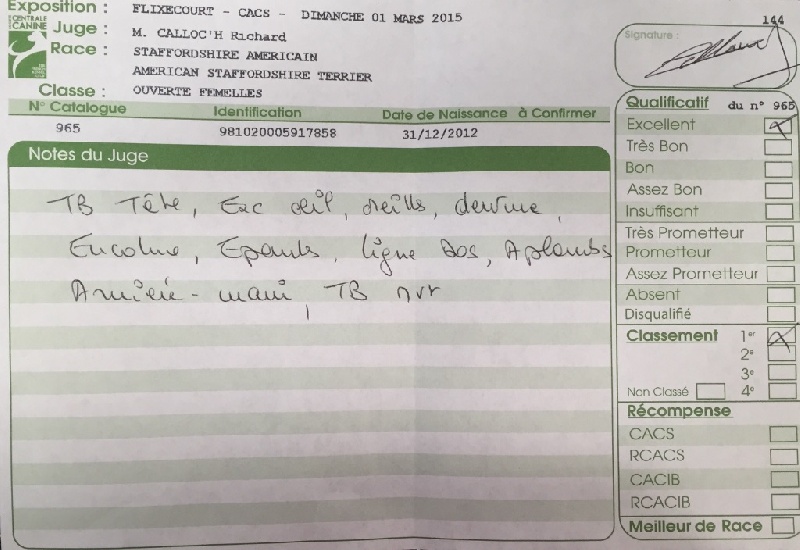 Exposition : FLIXECOURT - CACS - DIMANCHE 01 MARS 2015
CENTRALE CANINE
Juge : M. CALLOC'H Richard
Race : STAFFORDSHIRE AMERICAIN
AMERICAN STAFFORDSHIRE TERRIER
Classe : OUVERTE FEMELLES
N° Catalogue Identification Date de Naissance à Confirmer
965 981020005917858 31/12/2012
Notes du Juge
TB Tête, Exc œil, oreilles, denture,
Encolure, Epaules, ligne Dos, Aplombs
Arrière-main, TB
144
Signature :
Qualificatif du n° 965
Excellent
Très Bon
Bon
Assez Bon
Insuffisant
Très Prometteur
Prometteur
Assez Prometteur
Absent
Disqualifié
Classement 1er
2e
3e
Non Classé 4e
Récompense
CACS
RCACS
CACIB
RCACIB
Meilleur de Race